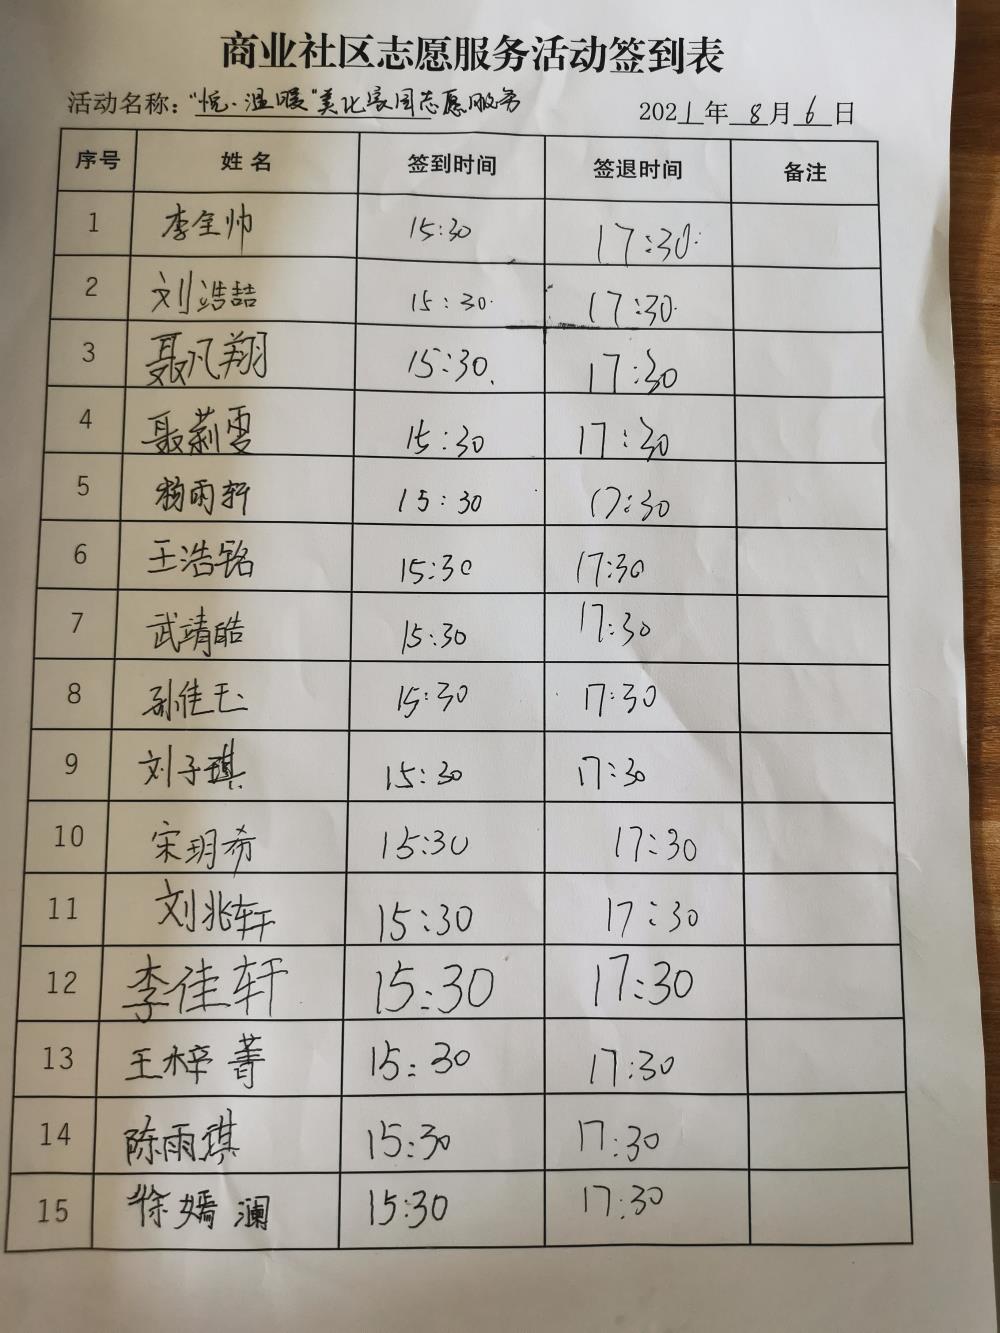 商业社区志愿服务活动签到表
活动名称："悦·温暖"美化家园志愿服务 2021年8月6日
序号 姓名 签到时间 签退时间 备注
1 李全帅 15:30 17:30
2 刘浩喆 15:30 17:30
3 聂凡翔 15:30 17:30
4 聂莉雯 15:30 17:30
5 杨雨轩 15:30 17:30
6 王浩铭 15:30 17:30
7 武靖皓 15:30 17:30
8 孙佳玉 15:30 17:30
9 刘子琪 15:30 17:30
10 宋玥希 15:30 17:30
11 刘兆轩 15:30 17:30
12 李佳轩 15:30 17:30
13 王梓菁 15:30 17:30
14 陈雨琪 15:30 17:30
15 徐嫣澜 15:30 17:30